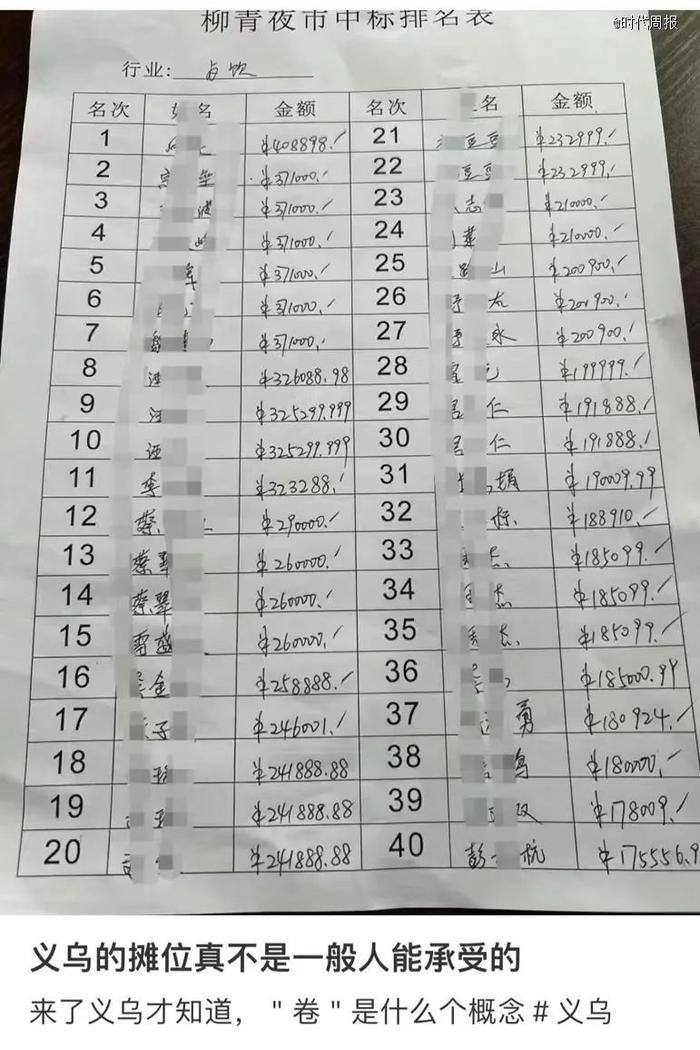 时代周报
柳青夜市中标排名表
行业:卤饮
名次 名 金额 名次 名 金额
1 ¥408898./ 21 豆 ¥232999./
2 ¥371000./ 22 豆 ¥232999./
3 波 ¥371000./ 23 志 ¥210000./
4 ¥371000./ 24 ¥210000./
5 ¥371000./ 25 山 ¥200900./
6 ¥371000./ 26 太 ¥200900./
7 ¥371000./ 27 永 ¥200900./
8 汪 ¥326088.98 28 元 ¥199999./
9 汪 ¥325299.999 29 吕 仁 ¥191888./
10 ¥325299.999 30 吕 仁 ¥191888./
11 李 ¥323288./ 31 娟 ¥190009.99
12 蔡 ¥290000./ 32 标 ¥188910./
13 蔡翠 ¥260000./ 33 杰 ¥185099./
14 蔡翠 ¥260000./ 34 杰 ¥185099./
15 雷 ¥260000./ 35 杰 ¥185099./
16 金 ¥258888./ 36 ¥185000.99
17 子 ¥246001./ 37 勇 ¥180924./
18 ¥241888.88 38 ¥180000./
19 ¥241888.88 39 双 ¥178009./
20 ¥241888.88 40 彭 杭 ¥175556.9
义乌的摊位真不是一般人能承受的
来了义乌才知道，"卷"是什么个概念#义乌